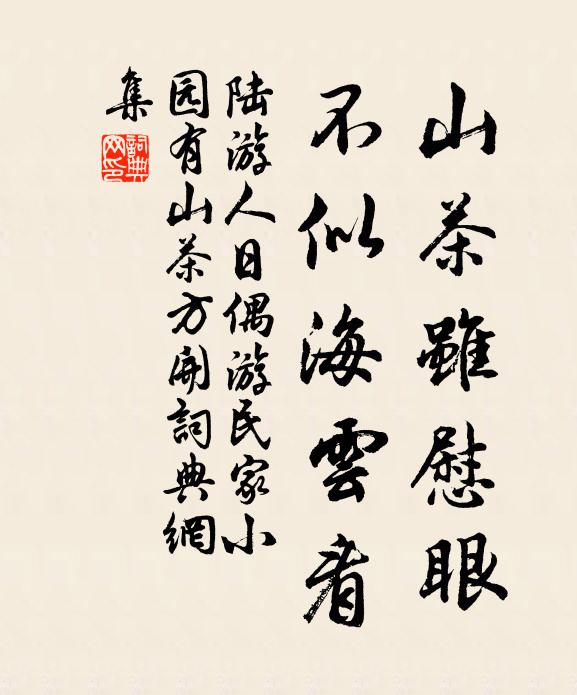 山茶雖慰眼
不似海雲看
陆游人日偶游民家小
园有山茶方開詞典網
集
詞典網印